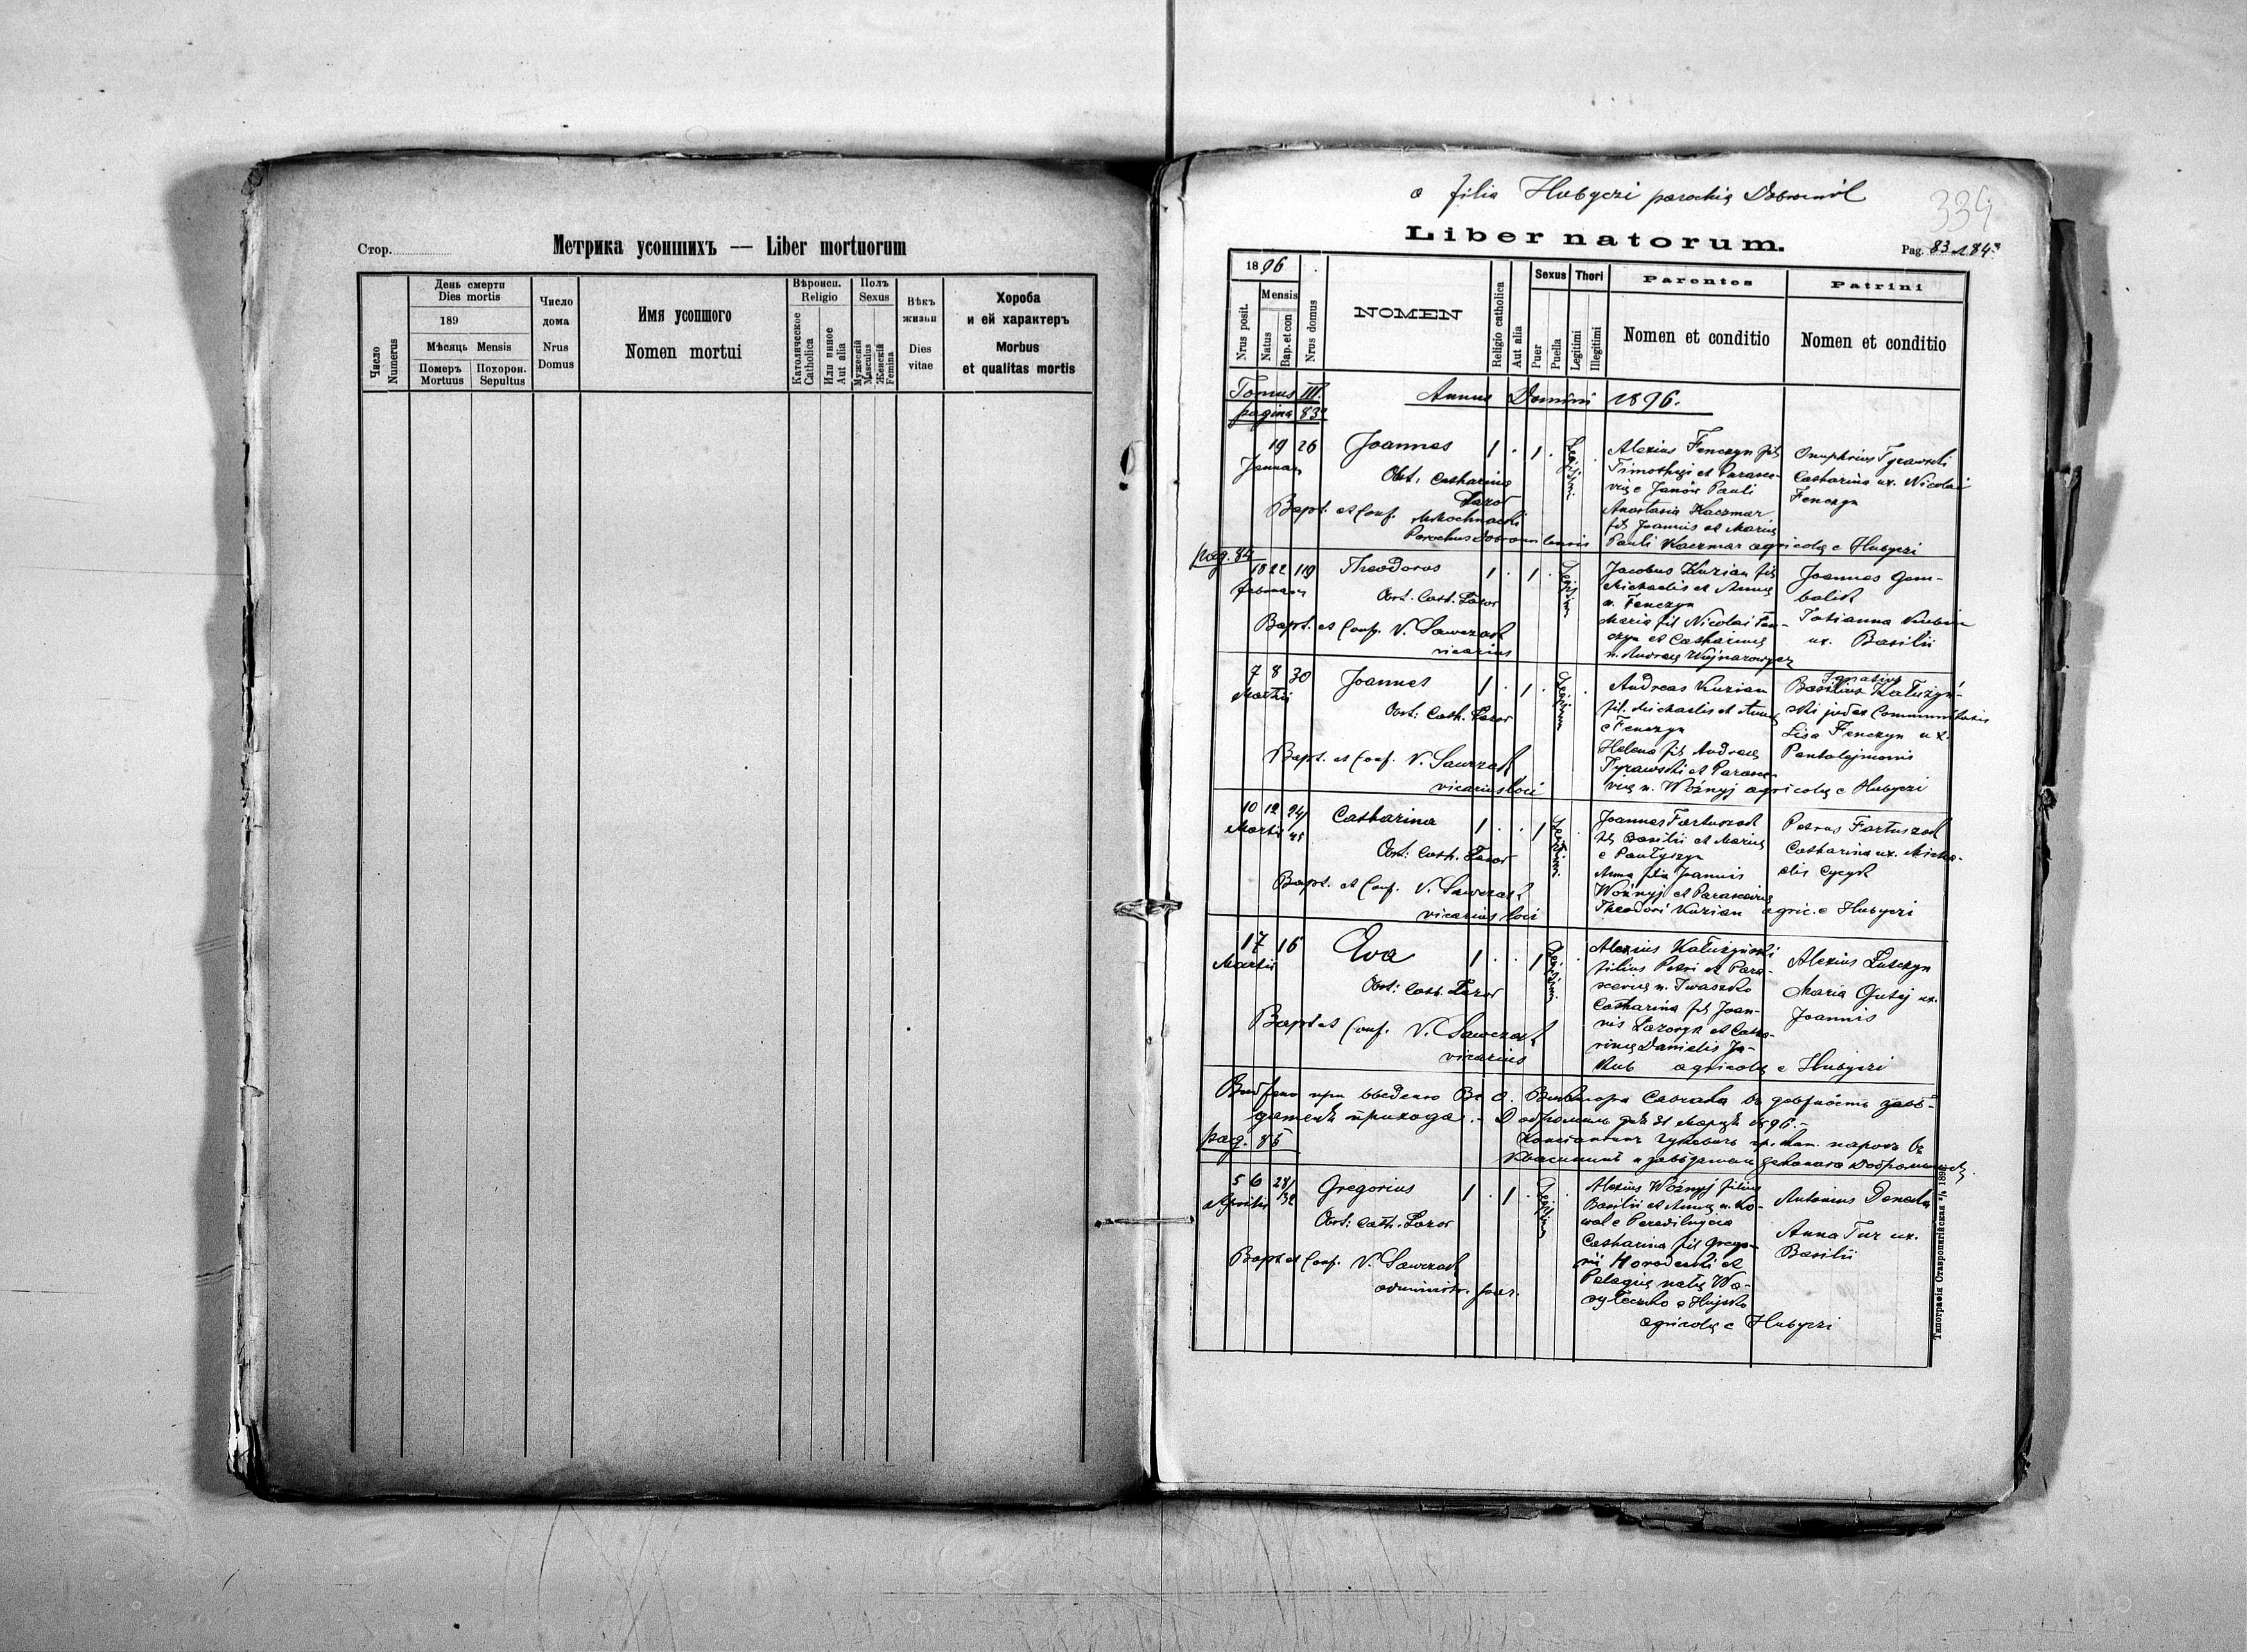 Стор.
Метрика усопшихъ — Liber mortuorum
Число
Numerus
День смерти
Dies mortis
189
Мѣсяць Mensis
Померъ
Mortuus
Похорон.
Sepultus
Число
дома
Nrus
Domus
Имя усопшого
Nomen mortui
Вѣроисп.
Religio
Католическое
Catholica
Или инное
Aut alia
Полъ
Sexus
Мужескій
Masculus
Женскій
Femina
Вѣкъ
жизни
Dies
vitae
Хороба
и ей характеръ
Morbus
et qualitas mortis
filia Hubyczi parochia
334
Liber natorum.
Pag. 83 84
1896
Nrus posit.
Mensis
Natus
Bap. et con
Nrus domus
NOMEN
Religio catholica
Aut alia
Sexus
Puer
Puella
Thori
Legitimi
Illegitimi
Parentes
Nomen et conditio
Patrini
Nomen et conditio
Tomus III.
pagina 83
Annus Domini 1896.
19 26 Joannes 1 . 1 .
Januar
Obst. Catharina
Lazor
Bapt. et Conf.
Parochus
Alexius Fenczyn fil.
Timothei et Parasce-
viae Pauli
Anastasia Kaczmar
fil. Joannis et Mariae
Pauli Kaczmar agricolae e Hubyczi
Onuphrius Tyrawski
Catharina ux. Nicolai
Fenczyn
pag. 84
18 22 119 Theodorus 1 . 1 .
Februar
Obst. Cath. Lazor
Bapt. et Conf. V. Sawczak
vicarius
Jacobus Kuzian fil.
Michaelis et Annae
n. Fenczyn
Maria fil. Nicolai Fen-
czyn et Catharinae
n. Andreae Wojnarowycz
Joannes Gem-
balik
Tatianna
ux. Basilii
7 8 30 Joannes 1 . 1 .
Martii
Obst: Cath. Lazor
Bapt. et Conf. V. Sawczak
vicarius loci
Andreas Kuzian
fil. Michaelis et Annae
e Fenczyn
Helena fil. Andreae
Tyrawski et Parasce-
viae n. Woźnyj agricolae e Hubyczi
Ignatius
Basilius Kałużyń-
ski judex Communitatis
Lisa Fenczyn ux.
Pantalejmonis
10 12 94/45 Catharina 1 . . 1
Martii
Obst: Cath. Lazor
Bapt. et Conf. V. Sawczak
vicarius loci
Joannes Fartuszok
fil. Basilii et Mariae
e Pautyszyn
Anna filia Joannis
Woźnyj et Parasceviae
Theodori Kuzian agric. e Hubyczi
Petrus Fartuszok
Catharina ux. Micha-
elis Cycyk
17 16 Eva 1 . . 1
Martii
Obst: Cath. Lazor
Bapt et Conf. V. Sawczak
vicarius
Alexius Kałużyński
filius Petri et Para-
sceviae n. Iwaszko
Catharina fil. Joan-
nis Lazoryk et Catha-
rinae Danielis Ja-
kub agricolae e Hubyczi
Alexius Łuczyn
Maria Gutej ux.
Joannis
при введеню Вс. о. Виктора Савчака въ
прихода. Добромиль дня 31 марта 1896.
pag. 85
5 6 28/32 Gregorius 1 . 1 .
Aprilis
Obst: Cath. Lazor
Bapt et Conf. V. Sawczak
administr. par.
Alexius Woźnyj filius
Basilii et Annae n. Ko-
wal e Peredilnycia
Catharina fil. Grego-
rii Horodecki et
Pelagiae natae Wa-
syleczko e Hujsko
agricolae e Hubyczi
Antonius Deneka
Anna Tur ux.
Basilii
Типографія Ставропигійская